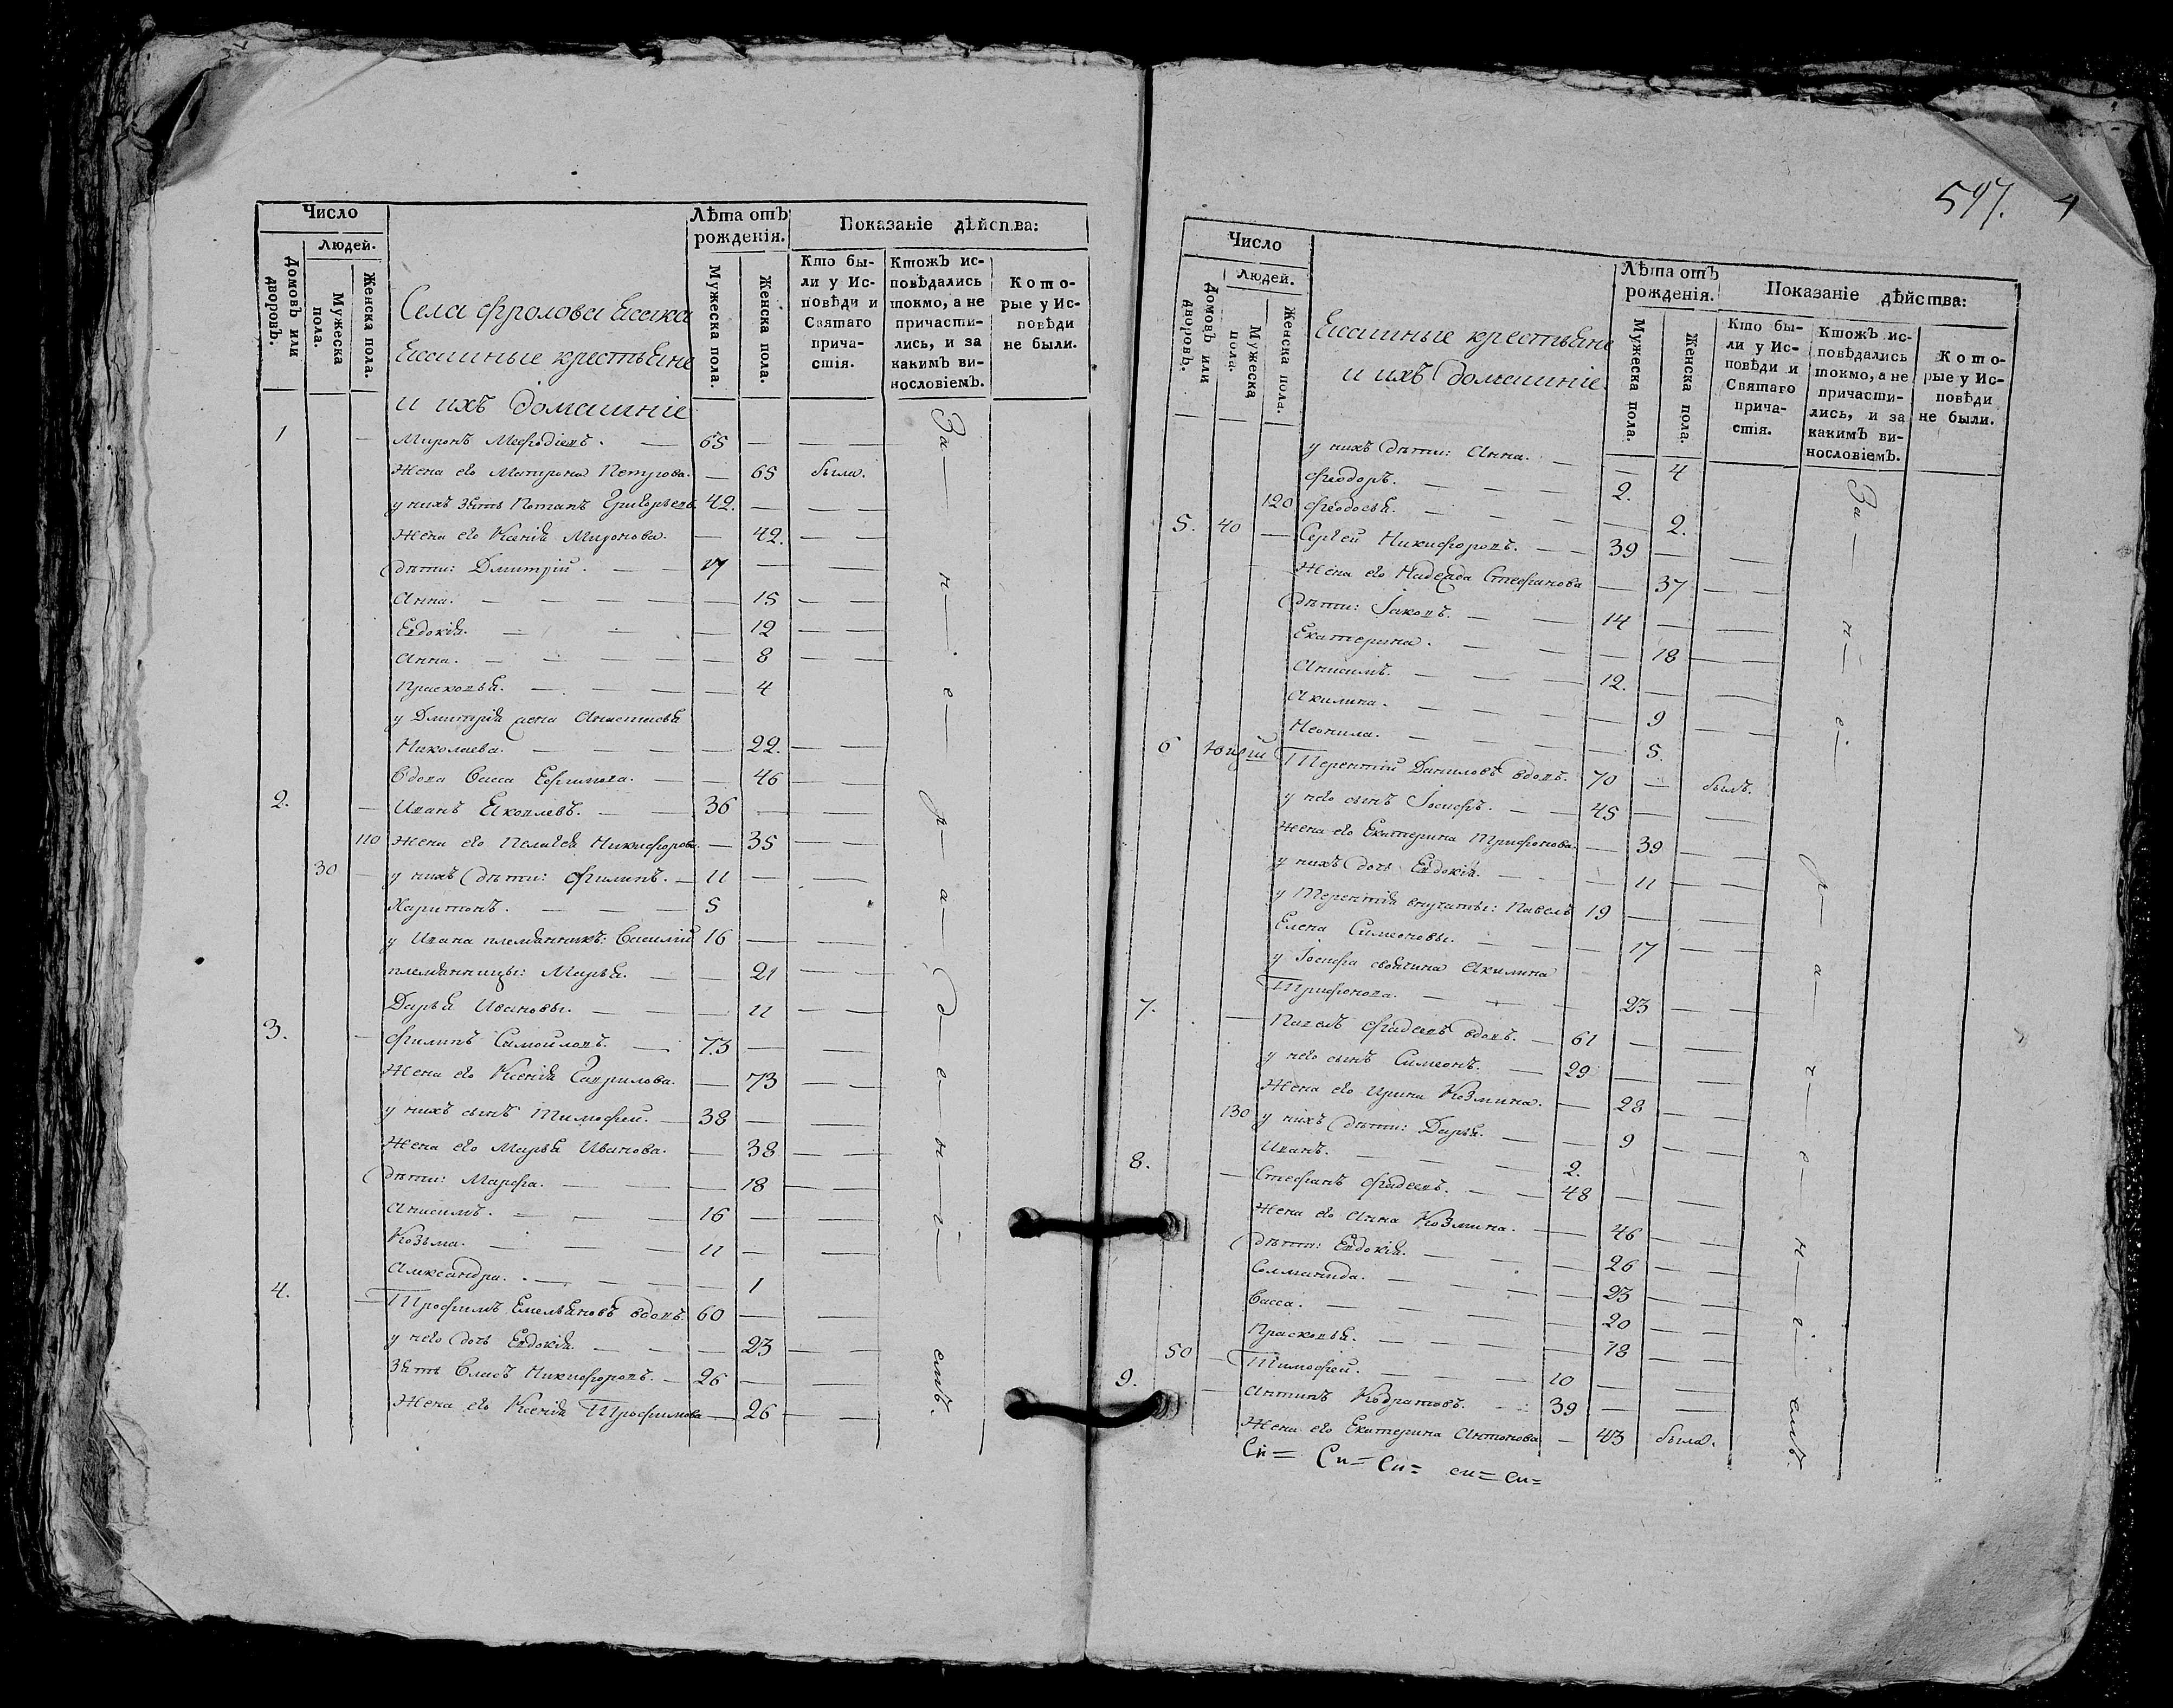 Число
Людей.
Домовъ или дворовъ.
Мужеска пола.
Женска пола.
Лѣта отъ рожденія.
Мужеска пола.
Женска пола.
Показаніе дѣйства:
Кто были у Исповѣди и Святаго причастія.
Ктожъ исповѣдались токмо, а не причастились, и за какимъ винословіемъ.
Которые у Исповѣди не были.
Села Фролова
крестьяне
и ихъ домашніе
1 — Миронъ Мефодіевъ. — 65 — — —
Жена его Матрона Петрова. — 65 была.
у нихъ зять Потапъ Григорьевъ. 42. — — —
Жена его Ксенія Миронова. — 42. — —
дѣти: Дмитрій. — — 17 — —
Анна. — — — — 15 — —
Евдокія. — — — 12 — —
Анна. — — — — — 8 — —
Прасковья. — — — — 4
у Дмитрія жена Анастасья
Николаева. — — — — 22. — —
Вдова Васса Ефимова. — — 46 — —
2. — Иванъ Яковлевъ. — — 36 — —
110 Жена его Пелагея Никифорова. — 35 — —
30 — у нихъ дѣти: Филипъ. — 11 — —
Харитонъ. — — — 5
у Ивана племянникъ: Василій 16 — —
племянницы: Марья. — — 21 — —
Дарья Ивановы. — — — 11 — —
3. — Филипъ Самойловъ. — 73 — —
Жена его Ксенія Гаврилова. — 73 — —
у нихъ сынъ Тимофей. — 38 — —
Жена его Марья Иванова. — 38 — —
дѣти: Марфа. — — — 18 — —
Анисимъ. — — — 16 — —
Козьма. — — — 11 — —
Александра. — — — — 1
4. — Трофимъ Емельяновъ вдовъ. 60 — —
у него дочь Евдокія. — — — 23 — —
Зять Власъ Никифоровъ. — 26 — —
Жена его Ксенія Трофимова — 26 — —
За — н — е — р — а — д — е — н — і — емъ.
Число
Людей.
Домовъ или дворовъ.
Мужеска пола.
Женска пола.
крестьяне
и ихъ домашніе
Лѣта отъ рожденія.
Мужеска пола.
Женска пола.
Показаніе дѣйства:
Кто были у Исповѣди и Святаго причастія.
Ктожъ исповѣдались токмо, а не причастились, и за какимъ винословіемъ.
Которые у Исповѣди не были.
у нихъ дѣти: Анна. — — 4
Феодоръ. — — — 2.
120 Феодосья. — — — — 2.
5. 40 — Сергей Никифоровъ. — — 39 — — —
Жена его Надежда Стефанова — 37 — —
дѣти: Іаковъ. — — 14 — — —
Екатерина. — — — 18 — —
Анисимъ. — — — 12. — — —
Акилина. — — — — 9 — —
Неонила. — — — — 5.
6 Терентій Даниловъ вдовъ. 70 — былъ.
у него сынъ Іосифъ. — — 45 — — —
Жена его Екатерина Трифонова. — 39 — —
у нихъ дочь Евдокія. — — — 11 — —
у Терентія внучаты: Павелъ 19 — — —
Елена Симеоновы. — — — 17 — —
у Іосифа своячина Акилина
Трифонова. — — — 23 — —
7. — Павелъ Фадеевъ вдовъ. — 61 — — —
у него сынъ Симеонъ. — 29 — — —
Жена его Ирина Козмина. — 28 — —
130 у нихъ дѣти: Дарья. — — 9 — —
Иванъ. — — — 2.
8. — Стефанъ Фадеевъ. — — 48 — — —
Жена его Анна Козмина. — 46 — —
дѣти: Евдокія. — — — 26 — —
— — — 23 — —
Васса. — — — — 20 — —
Прасковья. — — — — 18 — —
50 Тимофей. — — — 10 — — —
9. — Антипъ Кодратовъ. — 39 — — —
Жена его Екатерина Антонова — 43 была.
За — н — е — р — а — ч — е — н — і — емъ.